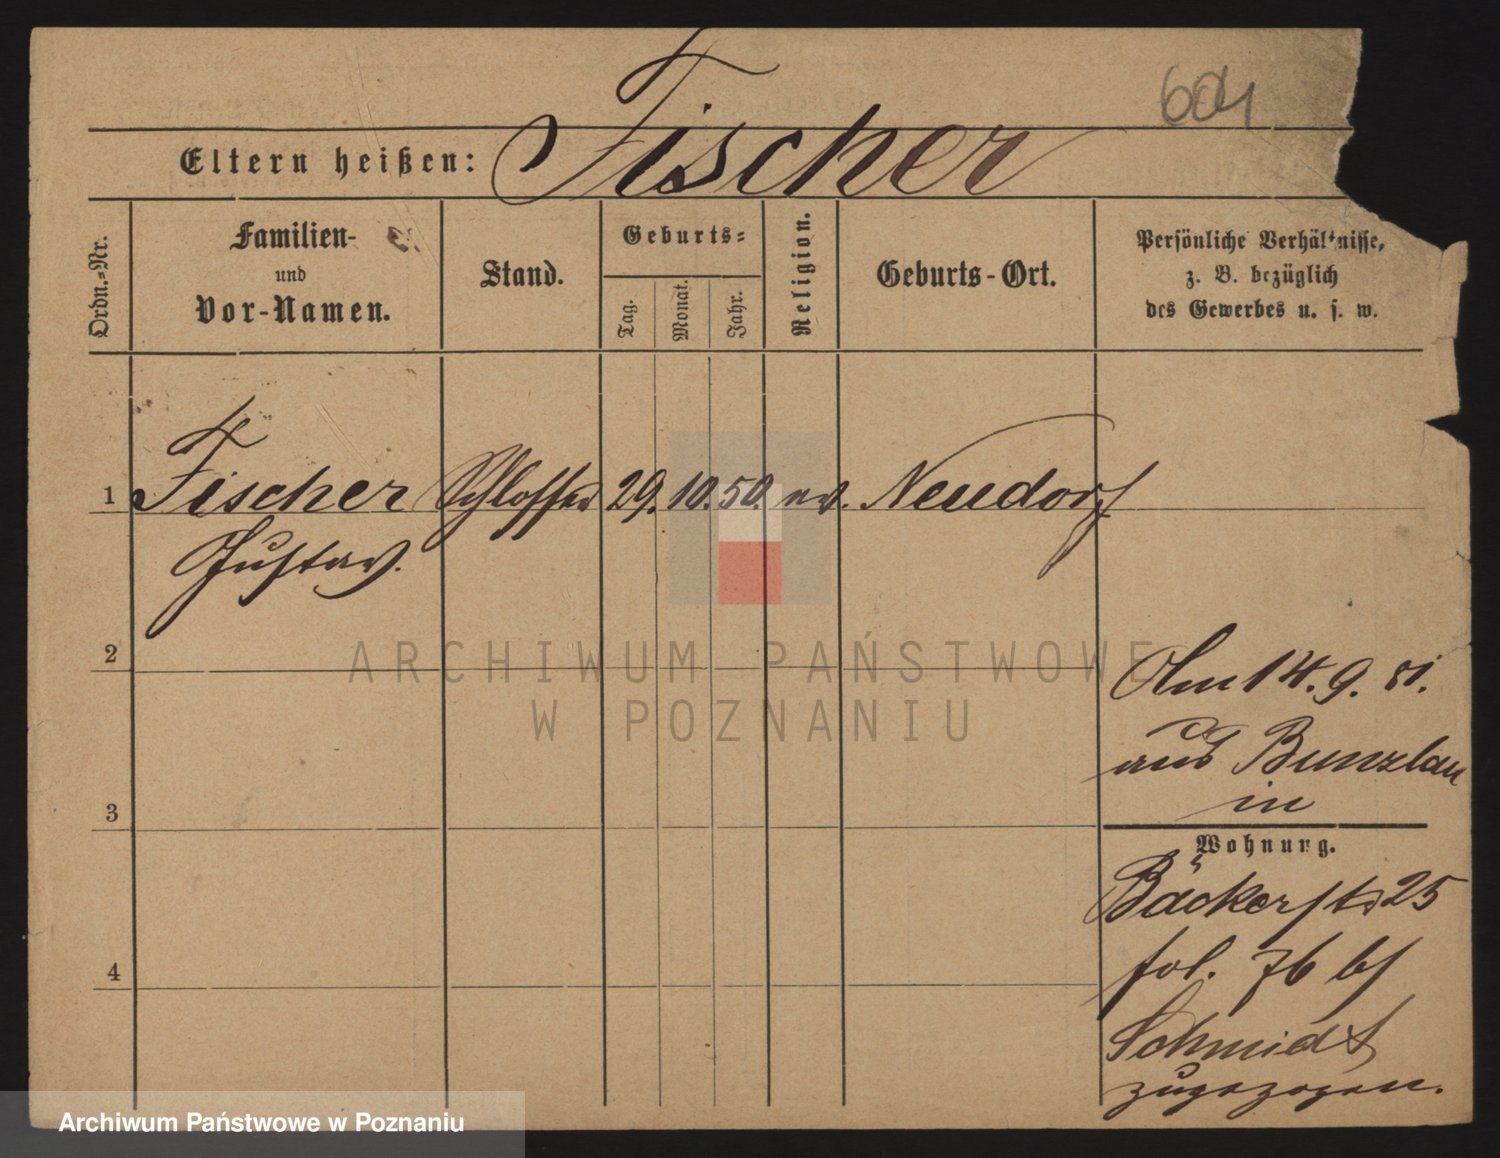 604
Eltern heißen: Fischer
Ordn.-Nr.
Familien-
und
Vor-Namen.
Stand.
Geburts-
Tag.
Monat.
Jahr.
Religion.
Geburts-Ort.
Persönliche Verhältnisse,
z. B. bezüglich
des Gewerbes u. s. w.
1 Fischer Schlosser 29. 10. 50. ev. Neudorf
Gustav.
2
3
4
Am 14. 9. 81.
aus Bunzlau
in
Wohnung.
Bäckerstr 25
fol. 76 b/
Schmidt
zugezogen.
ARCHIWUM PAŃSTWOWE
W POZNANIU
Archiwum Państwowe w Poznaniu